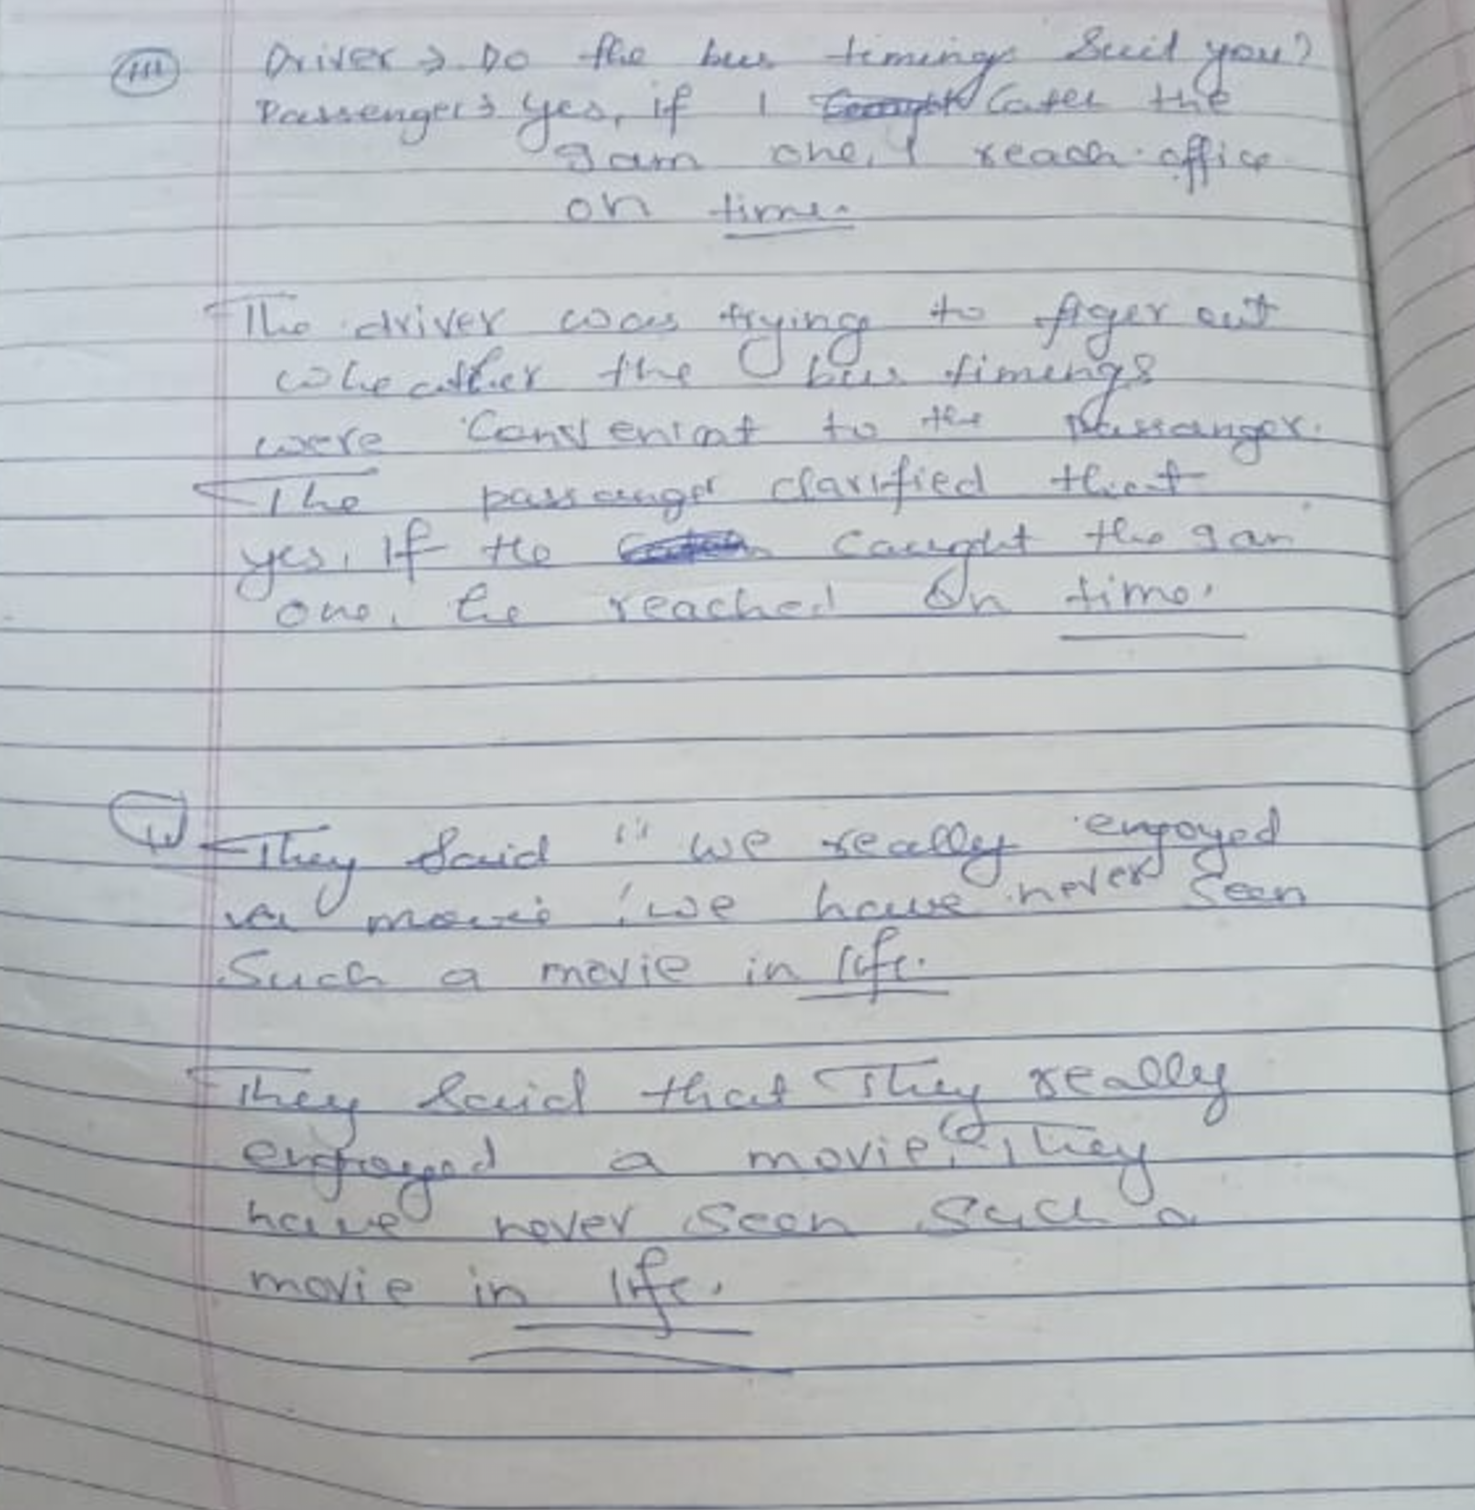 (iii) Driver → Do the bus timings suit you?
Passenger → Yes, if I catch the
9am one, I reach office
on time.
The driver was trying to figer out
wheather the bus timings
were convenient to the Passanger.
The passanger clarified that
yes, if he caught the 9am
one, he reached on time.
They said " we really enjoyed
movie we have never seen
Such a movie in life.
They said that They really
enjoyed a movie. They
have never seen such a
movie in life.